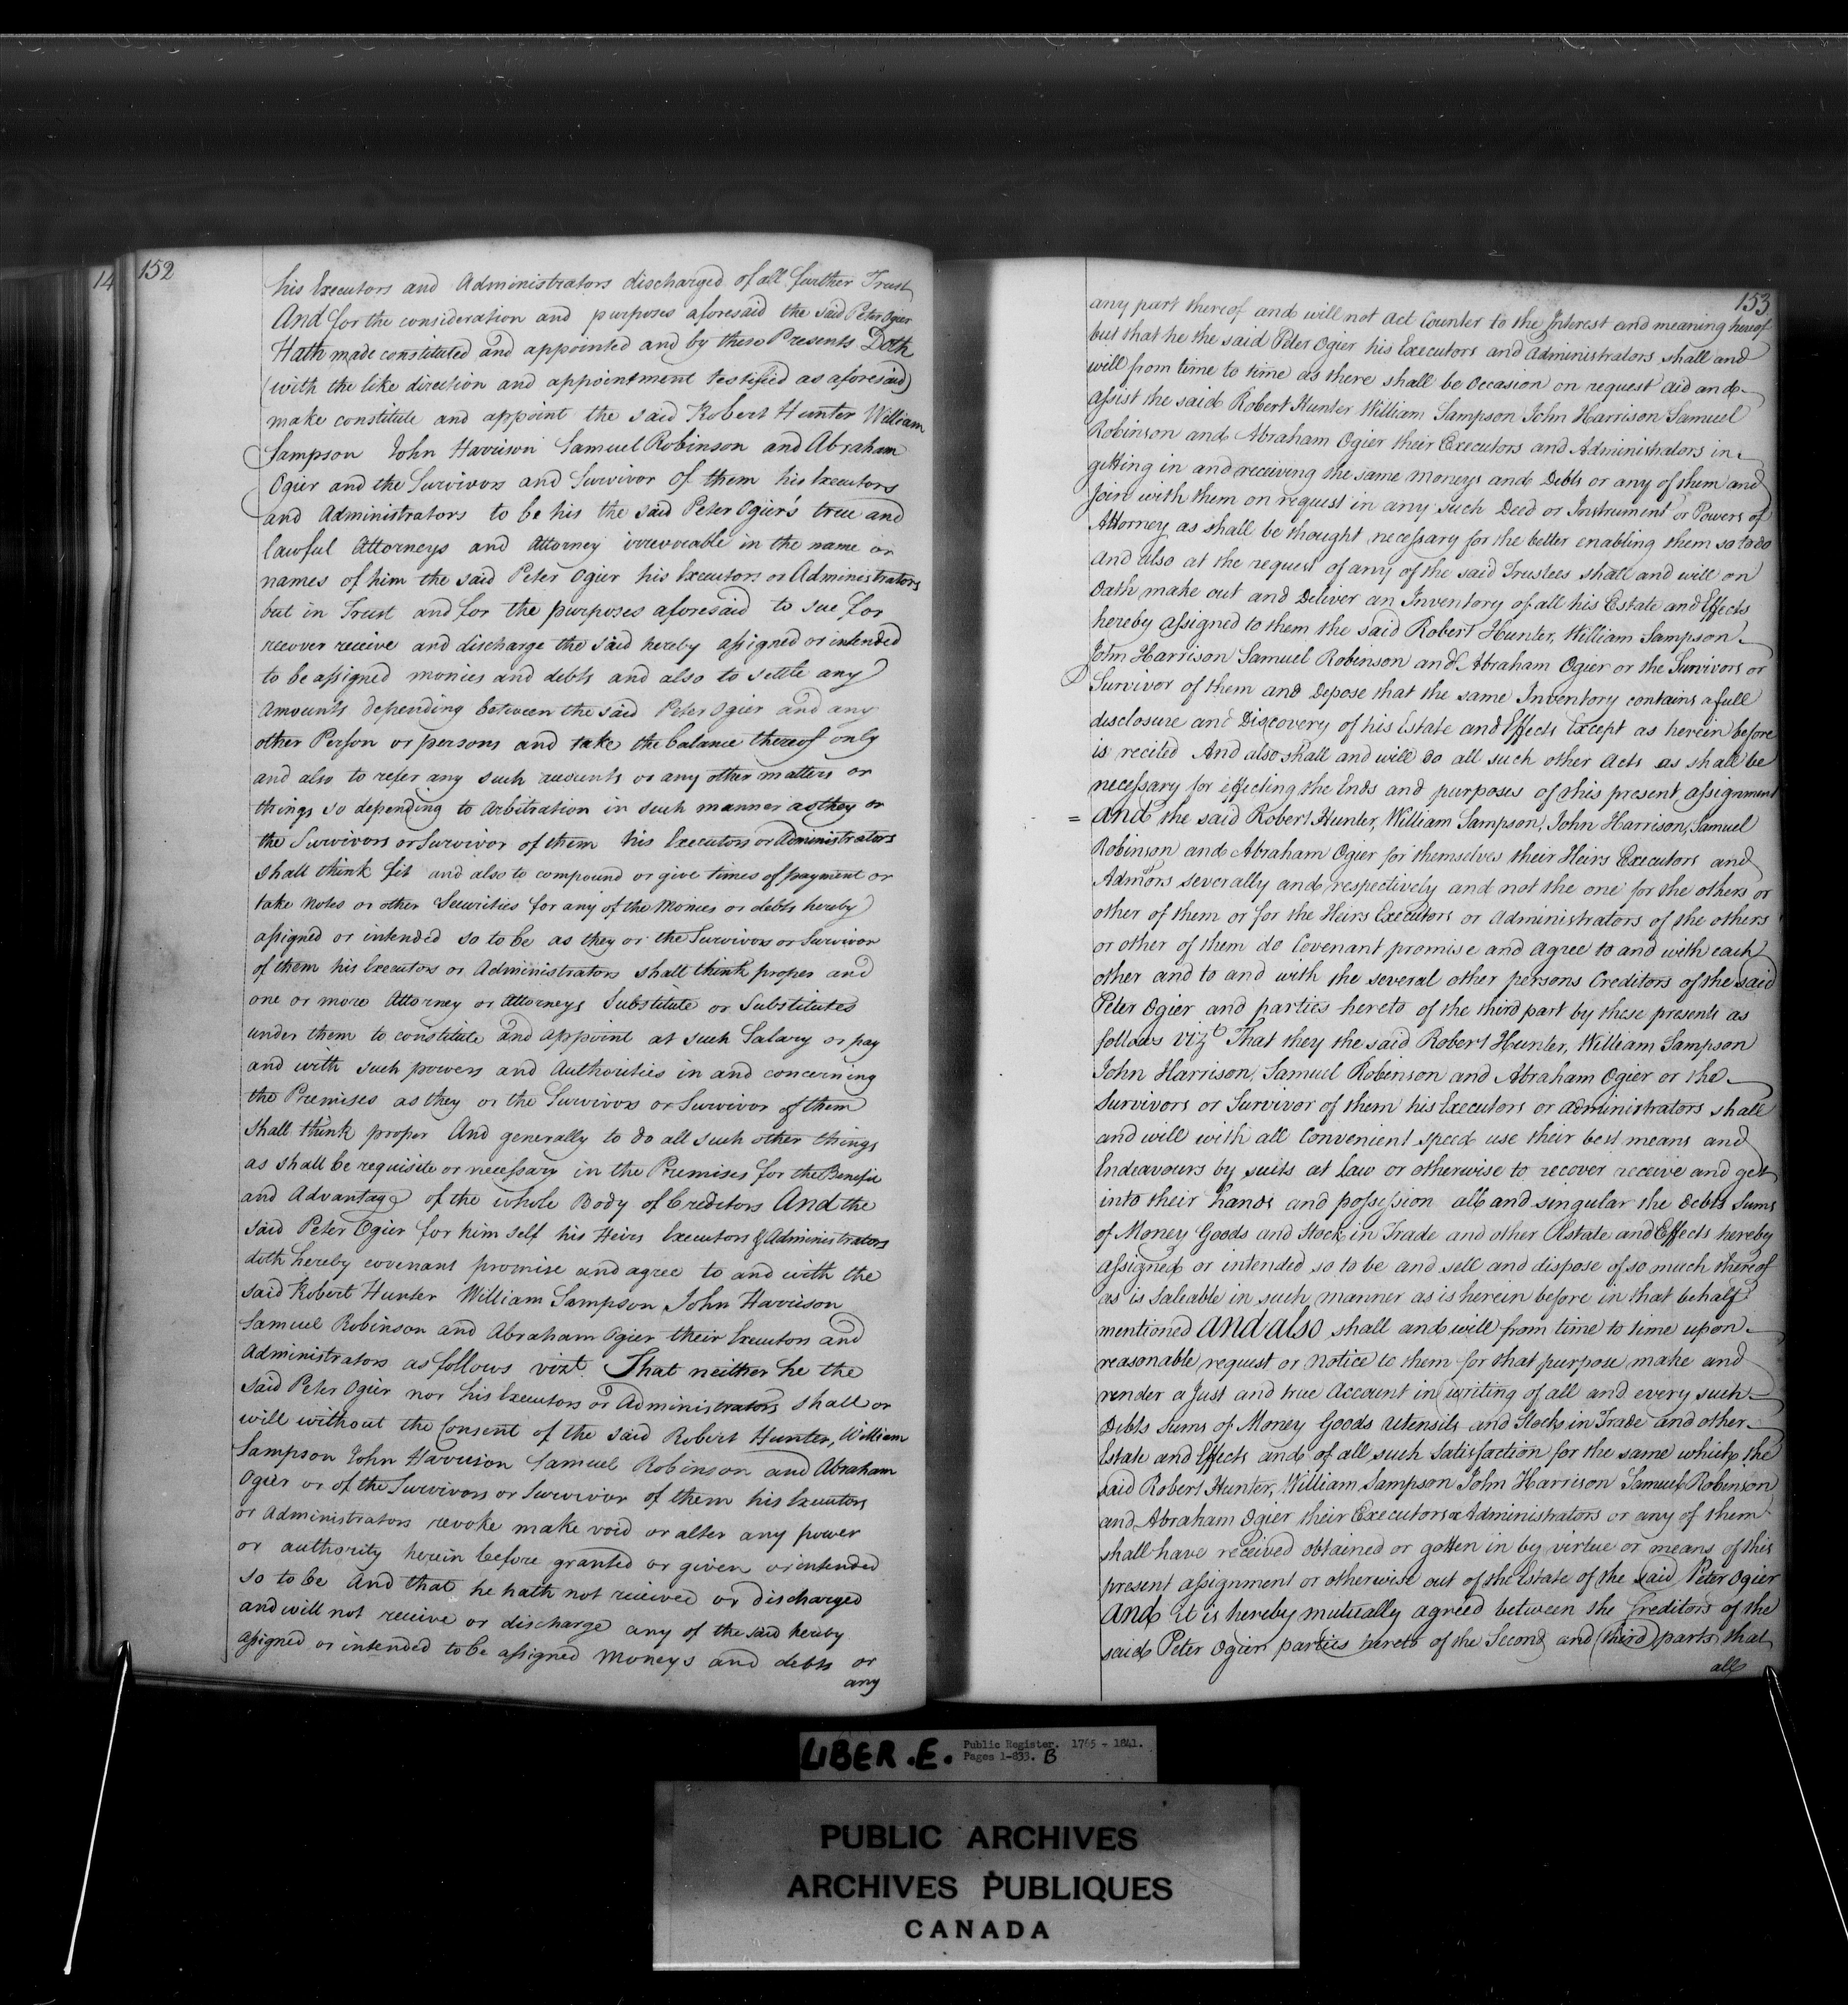 14
152
his Executors and Administrators discharged of all further Trust
And for the consideration and purposes aforesaid the said Peter Ogier
Hath made constituted and appointed and by these Presents Doth
(with the like direction and appointment testified as aforesaid)
make constitute and appoint the said Robert Hunter William
Sampson John Harrison Samuel Robinson and Abraham
Ogier and the Survivors and Survivor of them his Executors
and Administrators to be his the said Peter Ogier's true and
lawful Attorneys and Attorney irrevocable in the name or
names of him the said Peter Ogier his Executors or Administrators
but in Trust and for the purposes aforesaid to sue for
recover receive and discharge the said hereby assigned or intended
to be assigned monies and debts and also to settle any
Amounts depending between the said Peter Ogier and any
other Person or persons and take the balance thereof only
and also to refer any such accounts or any other matters or
things so depending to Arbitration in such manner as they or
the Survivors or Survivor of them his Executors or Administrators
shall think fit and also to compound or give times of payment or
take Notes or other Securities for any of the Monies or debts hereby
assigned or intended so to be as they or the Survivors or Survivor
of them his Executors or Administrators shall think proper and
one or more Attorney or Attorneys Substitute or Substitutes
under them to constitute and appoint at such Salary or pay
and with such powers and Authorities in and concerning
the Premises as they or the Survivors or Survivor of them
shall think proper And generally to do all such other things
as shall be requisite or necessary in the Premises for the Benefit
and Advantage of the whole Body of Creditors And the
said Peter Ogier for him self his Heirs Executors & Administrators
doth hereby covenant promise and agree to and with the
said Robert Hunter William Sampson John Harrison
Samuel Robinson and Abraham Ogier their Executors and
Administrators as follows vizt. That neither he the
said Peter Ogier nor his Executors or Administrators shall or
will without the Consent of the said Robert Hunter, William
Sampson John Harrison Samuel Robinson and Abraham
Ogier or of the Survivors or Survivor of them his Executors
or Administrators revoke make void or alter any power
or authority herein before granted or given or intended
so to be And that he hath not received or discharged
and will not receive or discharge any of the said hereby
assigned or intended to be assigned Moneys and debts or
any
153
any part thereof and will not act Counter to the Interest and meaning hereof
but that he the said Peter Ogier his Executors and Administrators shall and
will from time to time as there shall be Occasion on request aid and
assist the said Robert Hunter William Sampson John Harrison Samuel
Robinson and Abraham Ogier their Executors and Administrators in
getting in and receiving the same Moneys and Debts or any of them and
Join with them on request in any such Deed or Instrument or Powers of
Attorney as shall be thought necessary for the better enabling them so to do
and also at the request of any of the said Trustees shall and will on
Oath make out and Deliver an Inventory of all his Estate and Effects
hereby assigned to them the said Robert Hunter, William Sampson
John Harrison Samuel Robinson and Abraham Ogier or the Survivors or
Survivor of them and Depose that the same Inventory contains a full
disclosure and Discovery of his Estate and Effects Except as herein before
is recited And also shall and will do all such other Acts as shall be
necessary for effecting the Ends and purposes of this present assignment
= And the said Robert Hunter, William Sampson, John Harrison, Samuel
Robinson and Abraham Ogier for themselves their Heirs Executors and
Admors severally and respectively and not the one for the others or
other of them or for the Heirs Executors or Administrators of the others
or other of them do Covenant promise and agree to and with each
other and to and with the several other persons Creditors of the said
Peter Ogier and parties hereto of the third part by these presents as
follows vizt That they the said Robert Hunter, William Sampson
John Harrison, Samuel Robinson and Abraham Ogier or the
Survivors or Survivor of them his Executors or Administrators shall
and will with all Convenient speed use their best means and
Endeavours by suits at Law or otherwise to recover receive and get
into their hands and possession all and singular the Debts Sums
of Money Goods and Stock in Trade and other Estate and Effects hereby
assigned or intended so to be and sell and dispose of so much thereof
as is Saleable in such manner as is herein before in that behalf
mentioned And also shall and will from time to time upon
reasonable request or Notice to them for that purpose make and
render a Just and true Account in writing of all and every such
Debts Sums of Money Goods Utensils and Stock in Trade and other
Estate and Effects and of all such Satisfaction for the same which the
said Robert Hunter, William Sampson John Harrison Samuel Robinson
and Abraham Ogier their Executors or Administrators or any of them
shall have received obtained or gotten in by virtue or means of this
present assignment or otherwise out of the Estate of the said Peter Ogier
And it is hereby mutually agreed between the Creditors of the
said Peter Ogier parties hereto of the Second and (third) parts that
all
LIBER.E. Public Register. 1765 - 1841.
Pages 1-833. B
PUBLIC ARCHIVES
ARCHIVES PUBLIQUES
CANADA